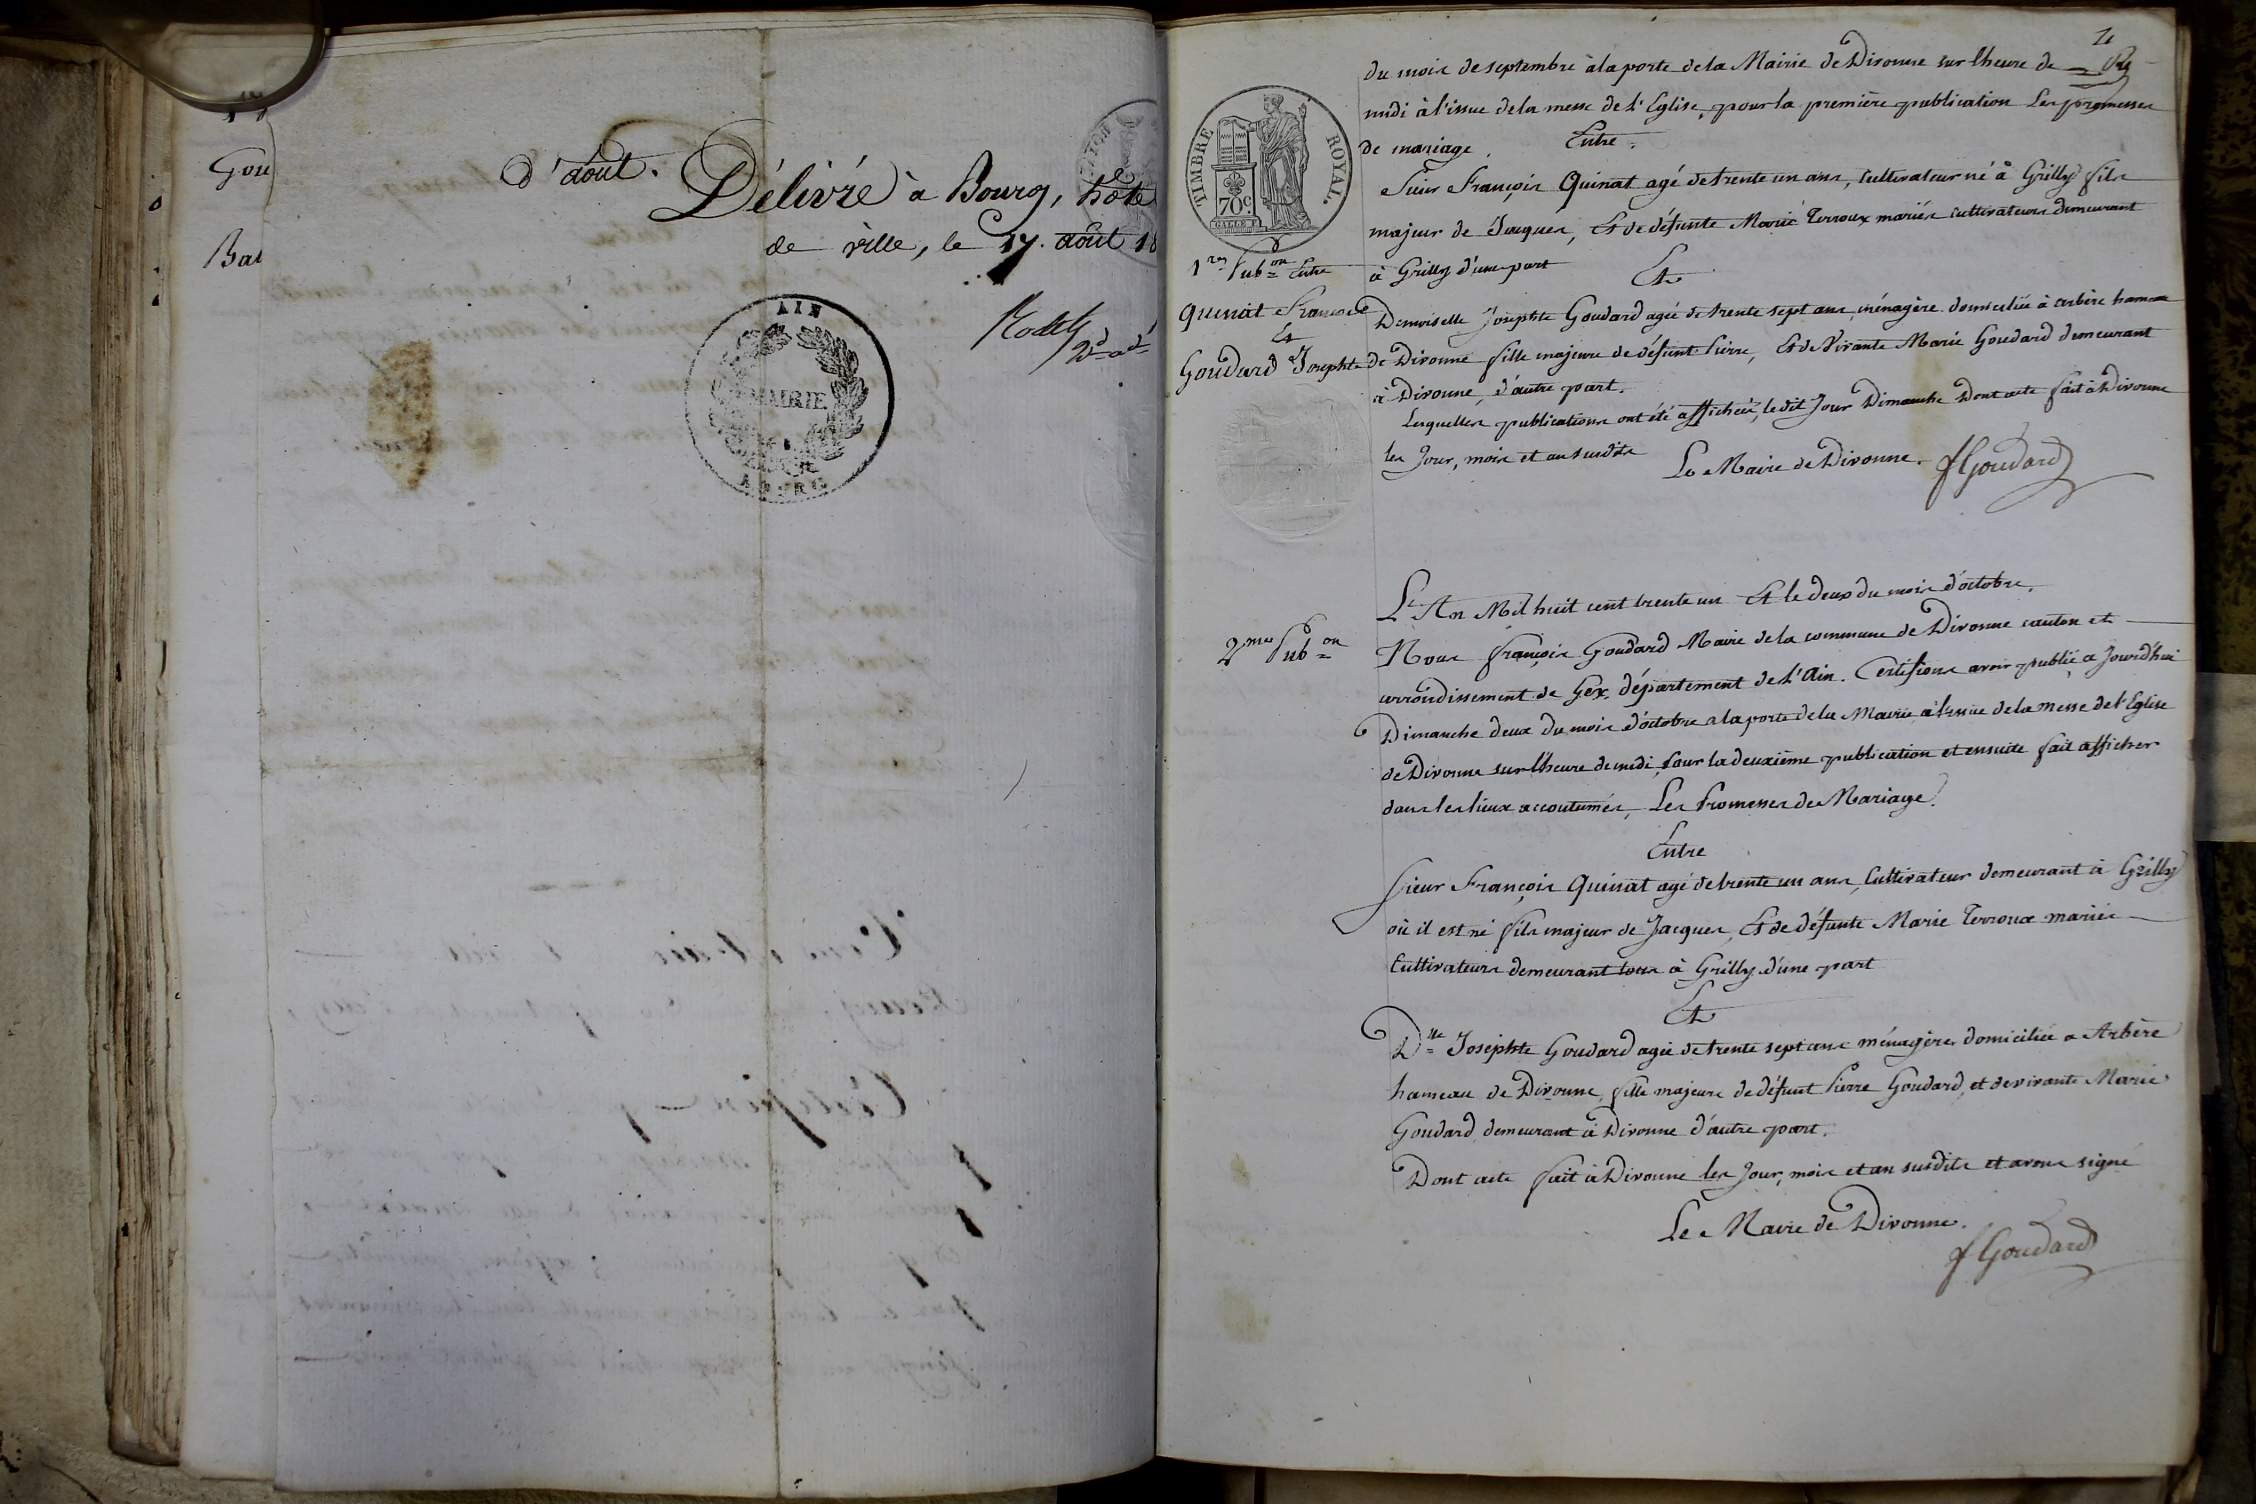 Gou
Bat
d'août.
Délivré à Bourg, hôte
de ville, le 17. août 18
AIN
MAIRIE
BOURG
4
du mois de septembre à la porte de la Mairie de Divonne sur lheure de
midi à l'issue de la messe de l'Eglise, pour la première publication Les promesses
de mariage.
Entre.
Sieur François Quinat agé de trente un ans, Cultivateur né à Grilly fils
majeur de Jacques, Et de défunte Marie Terroux mariés cultivateurs demeurant
à Grilly d'une part
Et
Demoiselle Josephte Goudard agée de trente sept ans, ménagère domiciliée à arbère hameau
de Divonne fille majeure de défunt Pierre, Et de Vivante Marie Goudard demeurant
à Divonne, d'autre part.
Lesquelles publications ont été affichées, le dit Jour Dimanche Dont acte fait à Divonne
les Jour, mois et an susdits
Le Maire de Divonne.
f Goudard
TIMBRE ROYAL.
70c
1re Pubon Entre
Quinat François
Et
Goudard Josephte
2me Pubon
L'An Mil huit cent trente un Et le deux du mois d'octobre.
Nous françois Goudard Maire de la commune de Divonne canton et
arrondissement de Gex, département de l'Ain. Certifions avoir publié a Jourd'hui
Dimanche deux du mois d'octobre a la porte de la Mairie à l'issue de la messe de l'Eglise
de Divonne sur lheure de midi, Pour la deuxième publication et ensuite fait afficher
dans les lieux accoutumés, Les Promesses de Mariage.
Entre
Sieur François Quinat agé de trente un ans, Cultivateur demeurant à Grilly
où il est né fils majeur de Jacques, Et de défunte Marie Terroux mariés
Cultivateurs demeurant tous à Grilly d'une part
Et
Dlle Josephte Goudard agée de trente sept ans ménagère domiciliée a Arbère
hameau de Divonne, fille majeure de défunt Pierre Goudard, et de vivante Marie
Goudard demeurant à Divonne d'autre part.
Dont acte fait à Divonne les Jour, mois et an susdits et avons signé
Le Maire de Divonne.
f Goudard